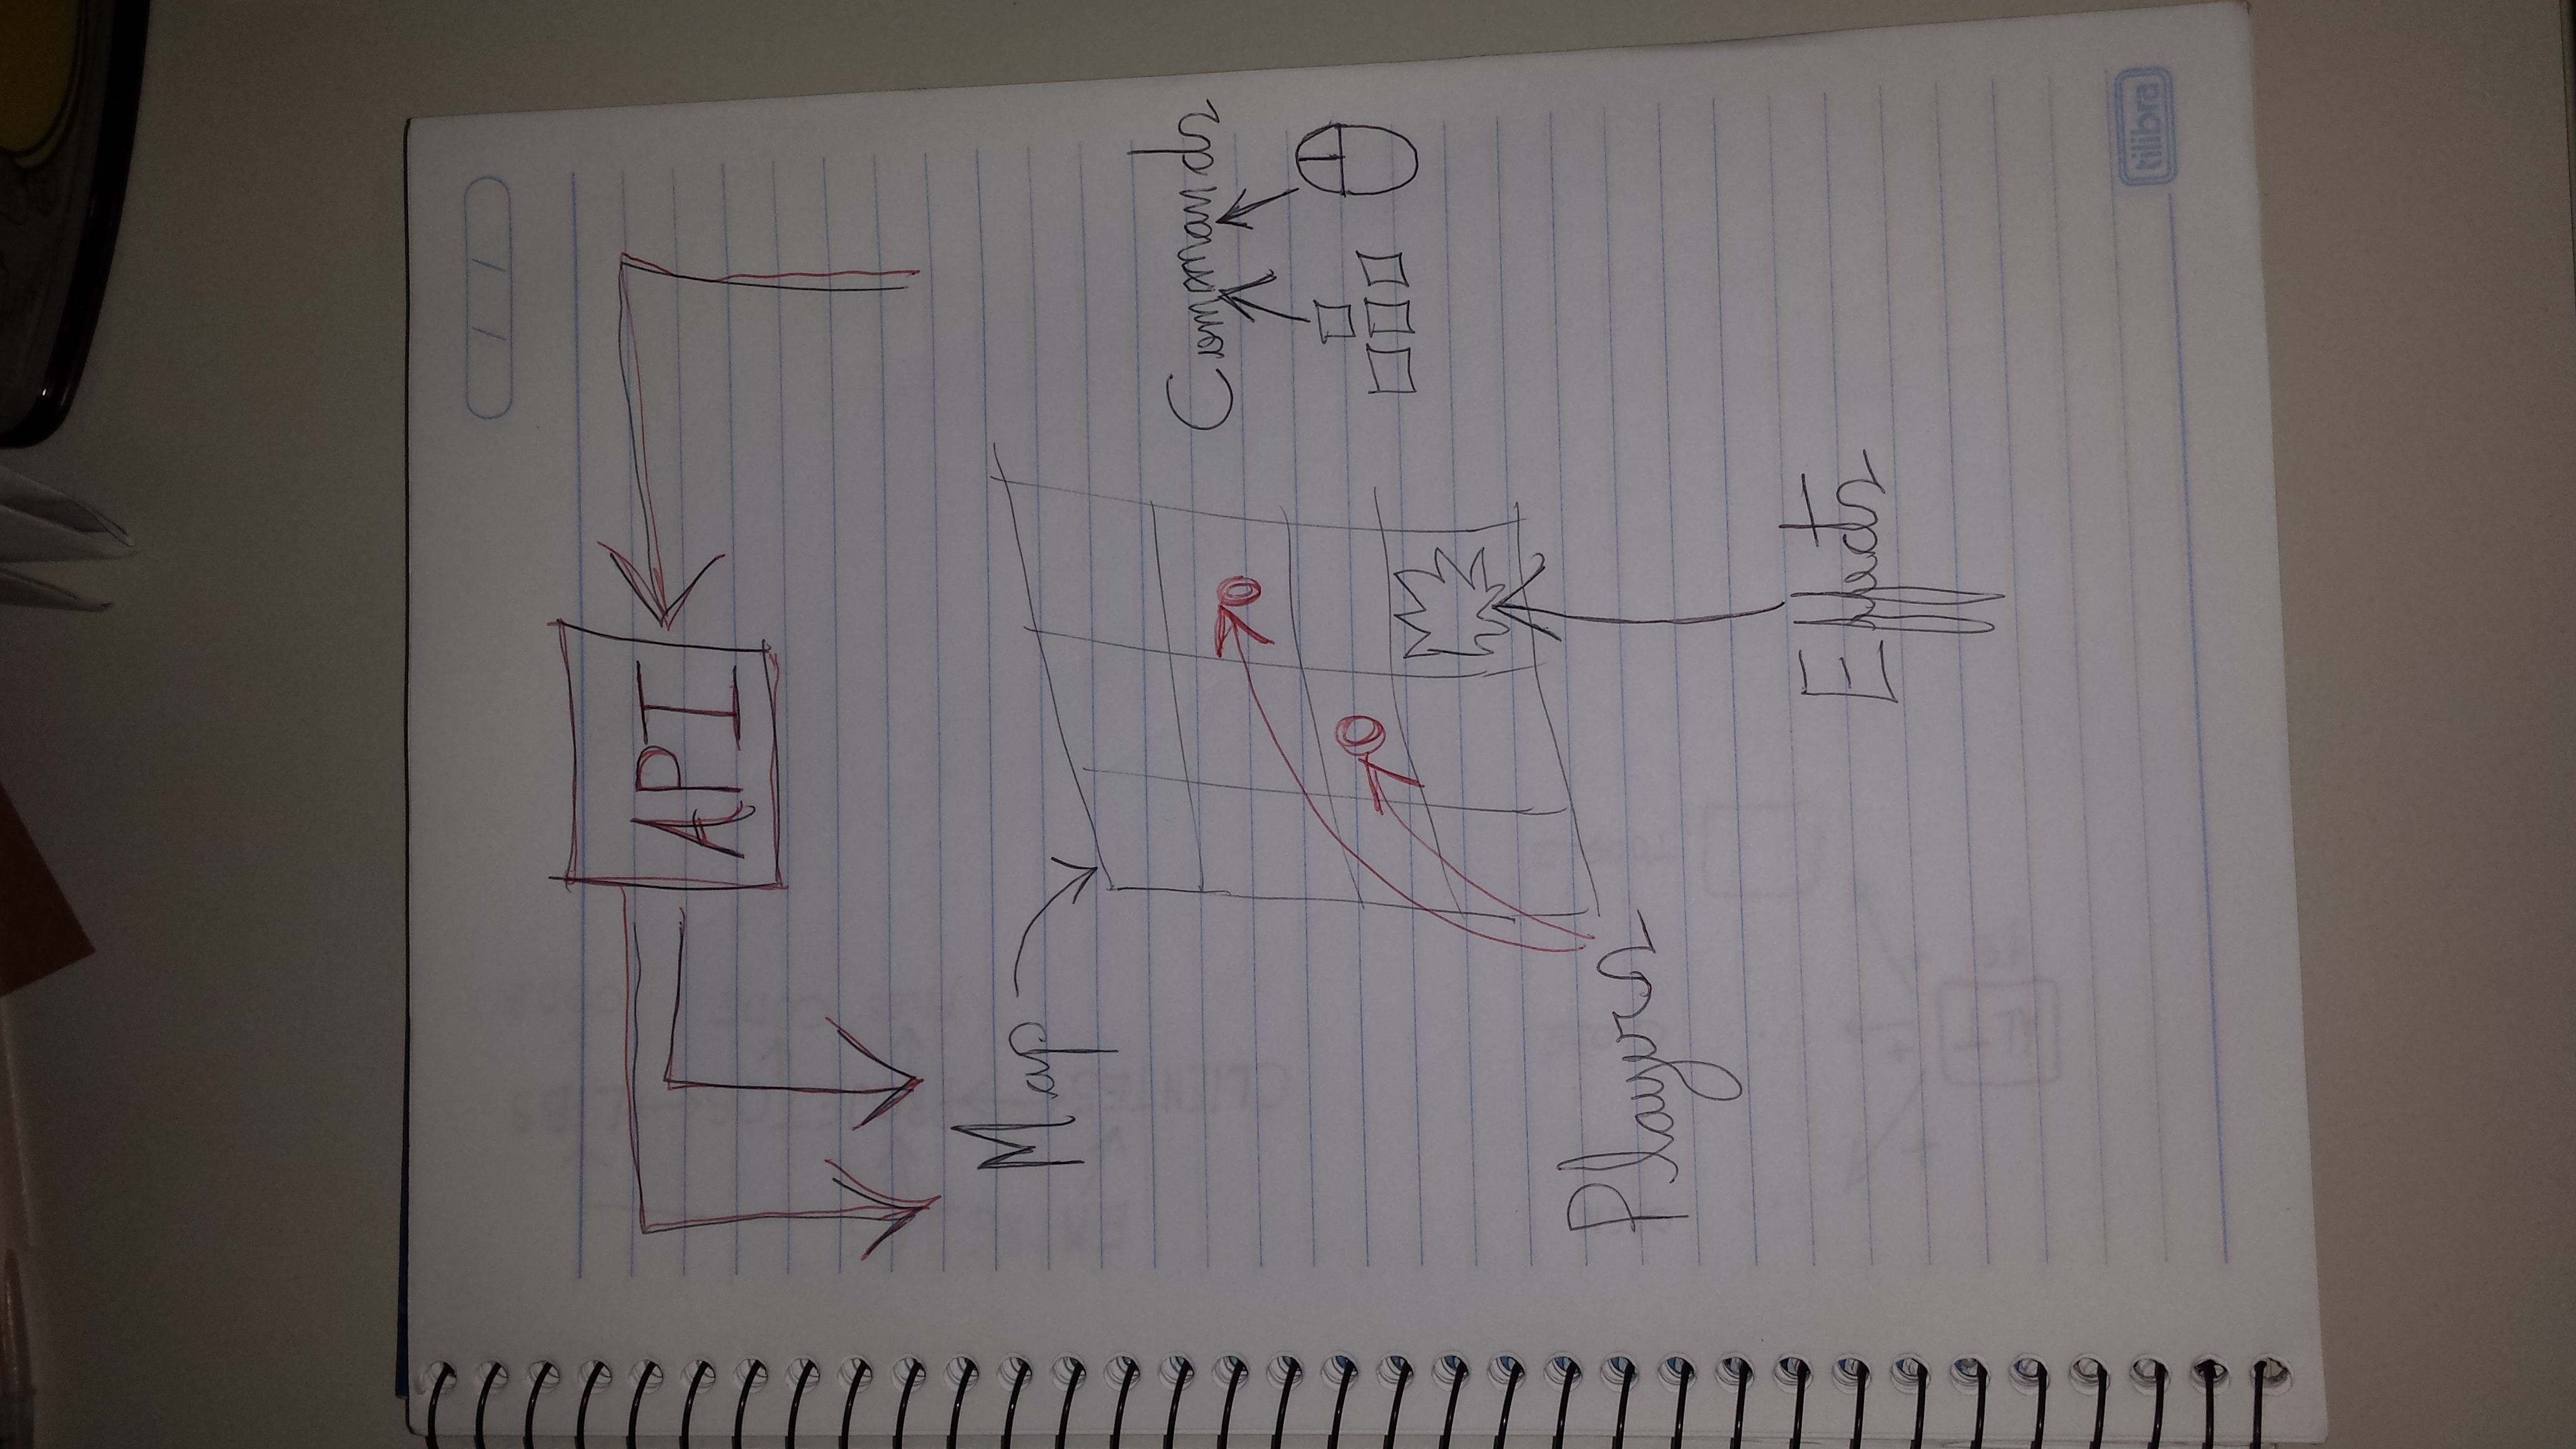 API
Map
Commands
Players
Effects
tilibra